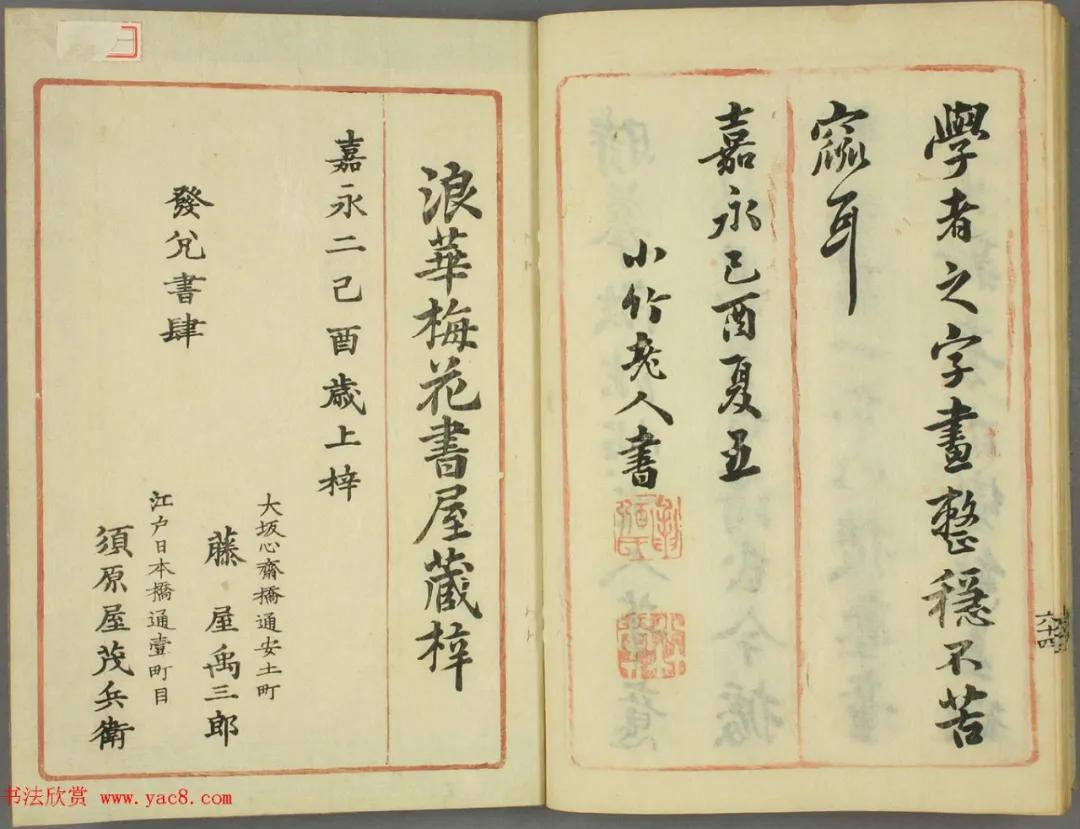 學者之字畫整穩不苦
窳耳
嘉永己酉夏五
小竹老人書
六十四
浪華梅花書屋藏梓
嘉永二己酉歲上梓
發兌書肆
大坂心齋橋通安土町
藤屋禹三郎
江戶日本橋通壹町目
須原屋茂兵衛
书法欣赏 www.yac8.com